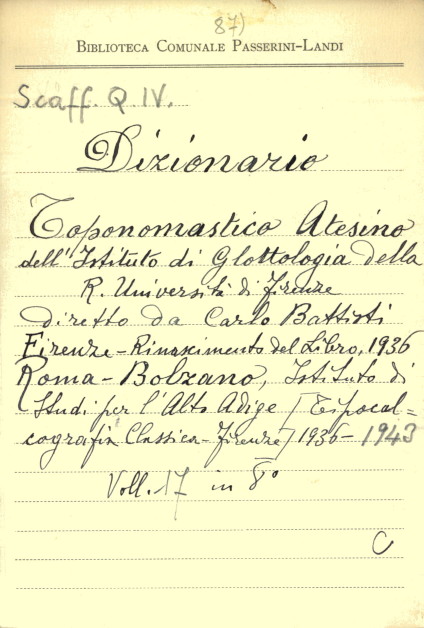 87)
BIBLIOTECA COMUNALE PASSERINI-LANDI
Scaff. Q. IV.
Dizionario
Toponomastico Atesino
dell'Istituto di Glottologia della
R. Università di Firenze
diretto da Carlo Battisti
Firenze - Rinascimento del Libro, 1936
Roma - Bolzano, Istituto di
Studi per l'Alto Adige [Tipocal=
cografia Classica - Firenze] 1936 - 1943
Voll. 17 in 8°
C